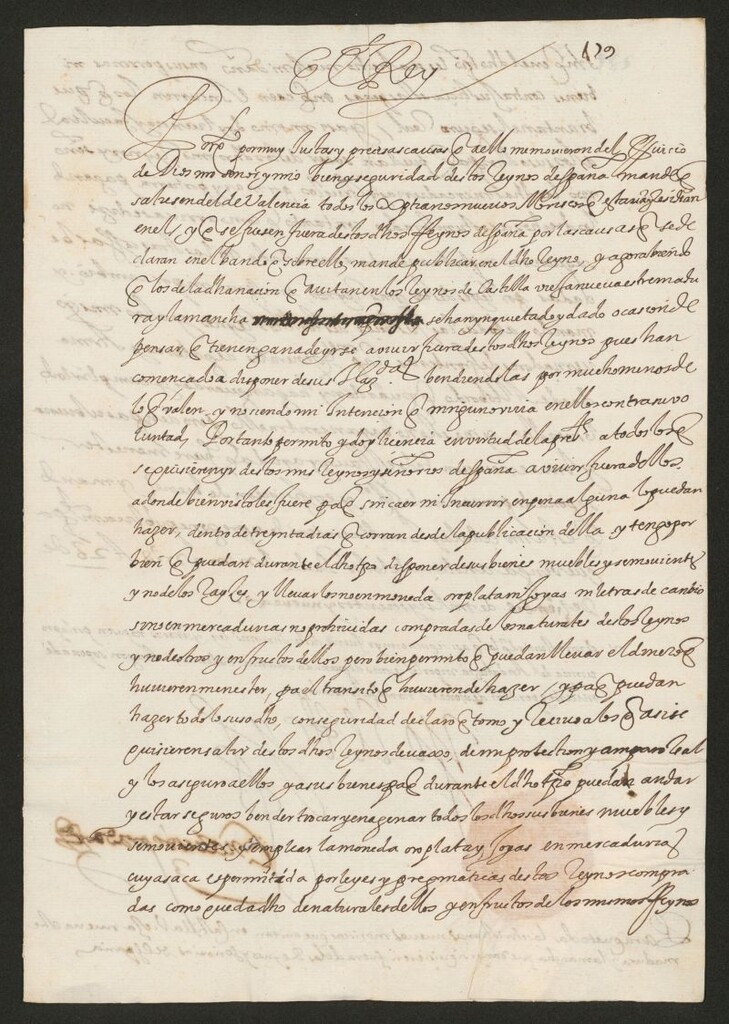 179
El Rey
Por q̃ por muy Justas y precisas causas q̃ a ello me movieron del servicio
de Dios mi señor y mio bien y seguridad destos Reynos despaña mande q̃
saliesen del de Valencia todos los Xp̃tianos nuevos Moriscos q̃ estavan y residian
en el y q̃ se fuesen fuera destos dhos Reynos despaña por las causas q̃ se de
claran en el bando q̃ sobre ello mande publicar en el dho Reyno, y agora biendo
q̃ los de la dha nacion q̃ avitan en los Reynos de Castilla vieja nueva estremadu
ra y la mancha se han ynquietado y dado ocasion de
pensar q̃ tienen gana de yrse a vivir fuera destos dhos Reynos pues han
comencado a disponer de sus Haz.das bendiendolas por mucho menos de
lo q̃ valen, y no siendo mi Intencion q̃ ninguno viva en ellos contra su vo
luntad, Por tanto permito y doy licencia en virtud de la pres.te a todos los q̃
se quisieren yr destos mis Reynos y señorios despaña a vivir fuera dellos
adonde bien visto les fuere pa q̃ sin caer ni Incurrir en pena alguna lo puedan
hazer, dentro de treynta dias q̃ corran desde la publicacion della y tengo por
bien q̃ puedan durante el dho tpo disponer de sus bienes muebles y semovientes
y no de los rayzes, y llevarlos no en moneda oro plata ni joyas ni letras de canbio
sino en mercadurias no prohividas compradas de los naturales destos Reynos
y no de otros y en fructos dellos pero bien permito q̃ puedan llevar el dinero q̃
huvieren menester, pa el transito q̃ huvieren de hazer, y pa q̃ puedan
hazer todo lo susodho, con seguridad declaro q̃ tomo y recivo a los q̃ asi se
quisieren salir destos dhos Reynos devaxo de mi protection y amparo real
y los aseguro a ellos y a sus bienes pa q̃ durante el dho tpo puedan andar
y estar seguros bender trocar y enagenar todos los dhos sus bienes muebles y
semovientes y emplear la moneda oro plata y joyas en mercadurias
cuya saca es permitida por leyes y pregmaticas destos Reynos compra
das como queda dho de naturales dellos y en fructos de los mismos Reynos